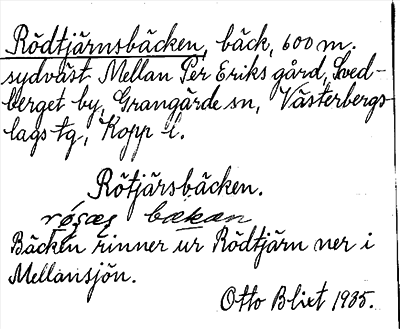 Rödtjärnsbäcken, bäck, 600 m.
sydväst Mellan Per Eriks gård, Sved-
berget by, Grangärde sn, Västerbergs-
lags tg, Kopp l.
Rötjärsbäcken.
bækan
Bäcken rinner ur Rödtjärn ner i
Mellansjön.
Otto Blixt 1935.